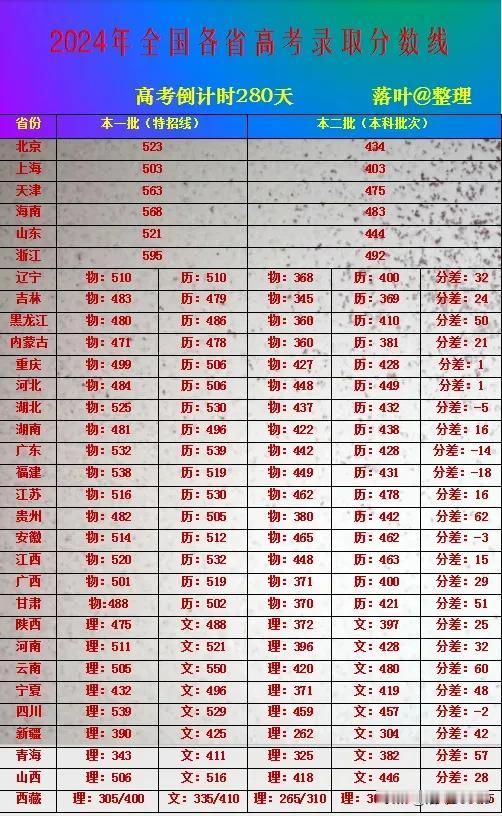 2024年全国各省高考录取分数线
高考倒计时280天 落叶@整理
省份 本一批（特招线） 本二批（本科批次）
北京 523 434
上海 503 403
天津 563 475
海南 568 483
山东 521 444
浙江 595 492
辽宁 物：510 历：510 物：368 历：400 分差：32
吉林 物：483 历：479 物：345 历：369 分差：24
黑龙江 物：480 历：486 物：360 历：410 分差：50
内蒙古 物：471 历：478 物：360 历：381 分差：21
重庆 物：499 历：506 物：427 历：428 分差：1
河北 物：484 历：506 物：448 历：449 分差：1
湖北 物：525 历：530 物：437 历：432 分差：-5
湖南 物：481 历：496 物：422 历：438 分差：16
广东 物：532 历：539 物：442 历：428 分差：-14
福建 物：538 历：519 物：449 历：431 分差：-18
江苏 物：516 历：530 物：462 历：478 分差：16
贵州 物：482 历：505 物：380 历：442 分差：62
安徽 物：514 历：512 物：465 历：462 分差：-3
江西 物：520 历：532 物：448 历：463 分差：15
广西 物：501 历：519 物：371 历：400 分差：29
甘肃 物:488 历：502 物：370 历：421 分差：51
陕西 理：475 文：488 理：372 文：397 分差：25
河南 理：511 文：521 理：396 文：428 分差：32
云南 理：505 文：550 理：420 文：480 分差：60
宁夏 理：432 文：496 理：371 文：419 分差：48
四川 理：539 文：529 理：459 文：457 分差：-2
新疆 理：390 文：425 理：262 文：304 分差：42
青海 理：343 文：411 理：325 文：382 分差：57
山西 理：506 文：516 理：418 文：446 分差：28
西藏 理：305/400 文：335/410 理：265/310